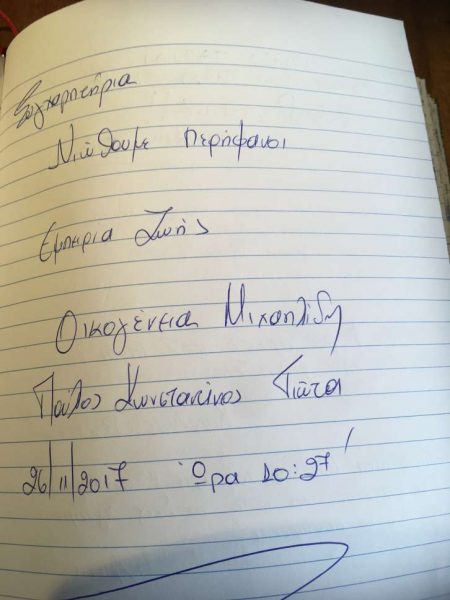 Συγχαρητήρια
Νιώθουμε περήφανοι
Εμπειρία Ζωής
Οικογένεια Μιχαηλίδη
Παύλος Κωνσταντίνος Γιώτα
26/11/2017 Ώρα 10:27'